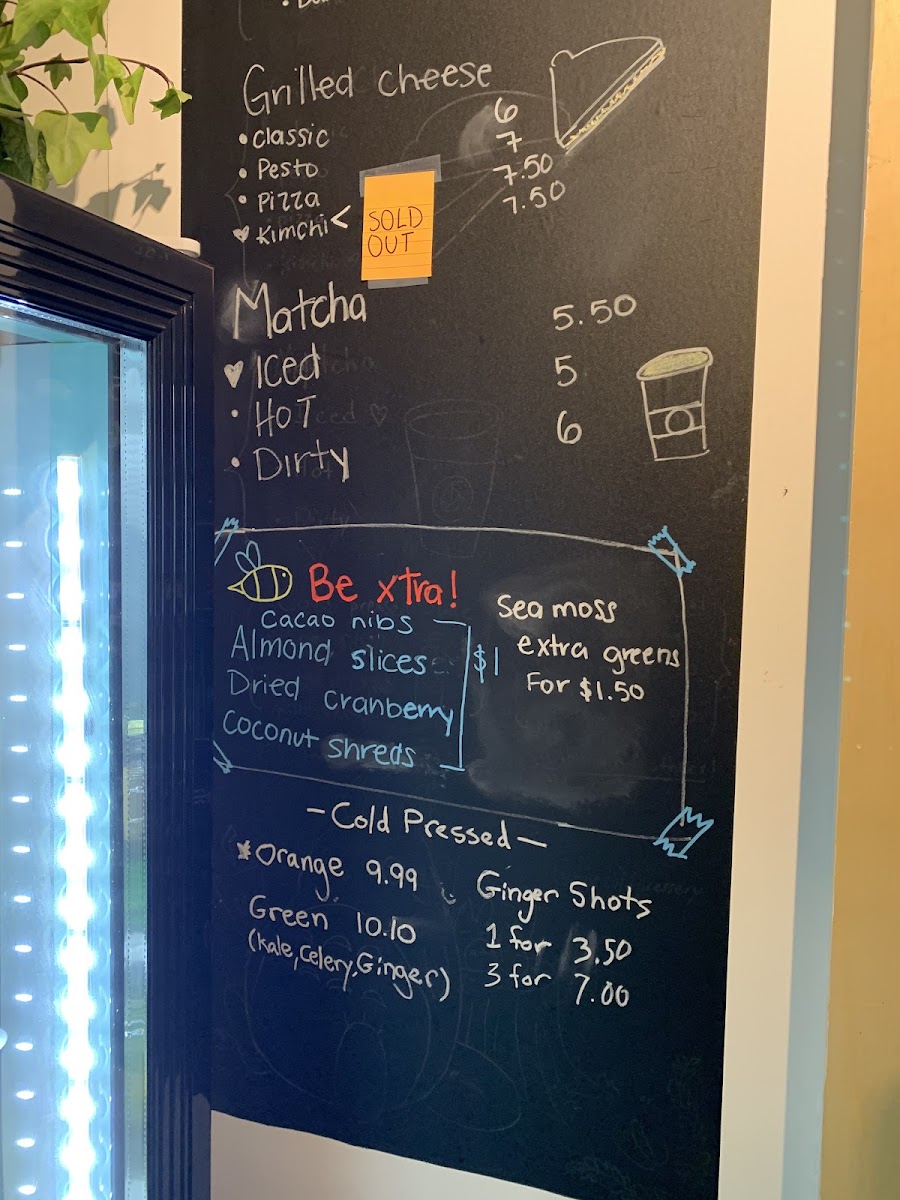 Grilled cheese
• Classic 6
• Pesto 7
• Pizza 7.50
♥ Kimchi < 7.50
SOLD
OUT
Matcha
♥ Iced 5.50
• HOT 5
• Dirty 6
Be xtra!
Cacao nibs
Almond slices
Dried cranberry
Coconut shreds
$1
Sea moss
extra greens
For $1.50
– Cold Pressed –
*Orange 9.99
Green 10.10
(Kale, Celery, Ginger)
Ginger Shots
1 for 3.50
3 for 7.00